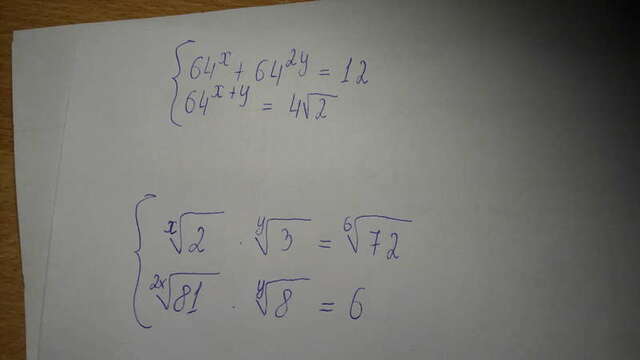 { 64^x + 64^{2y} = 12
64^{x+y} = 4√2
{ ^x√2 · ^y√3 = ^6√72
^{2x}√81 · ^y√8 = 6